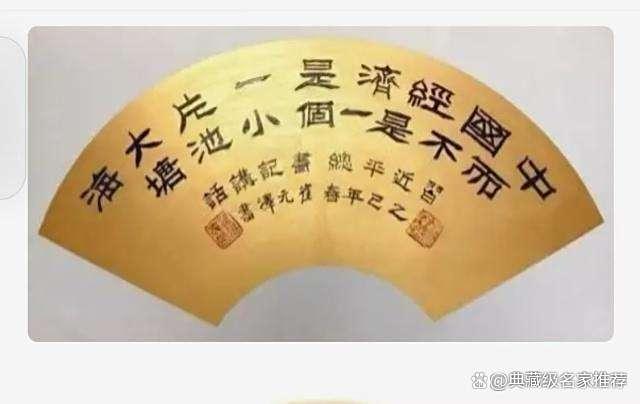 中國經濟是一片大海
而不是一個小池塘
習近平總書記講話
乙巳年春崔元書
@典藏级名家推荐